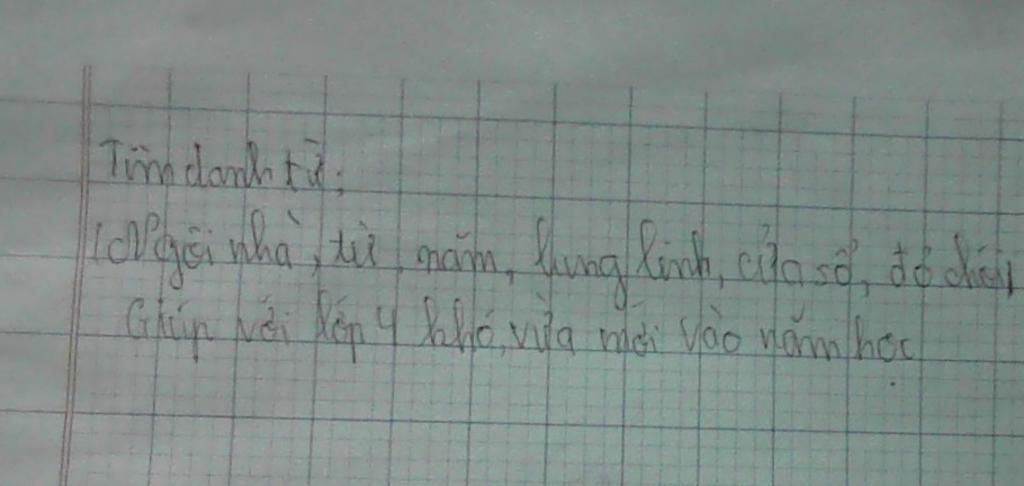 Tìm danh từ:
Ngôi nhà, từ, năm, lung linh, cửa sổ, đồ chơi
Giúp với lớp 4 khó, vừa mới vào năm học